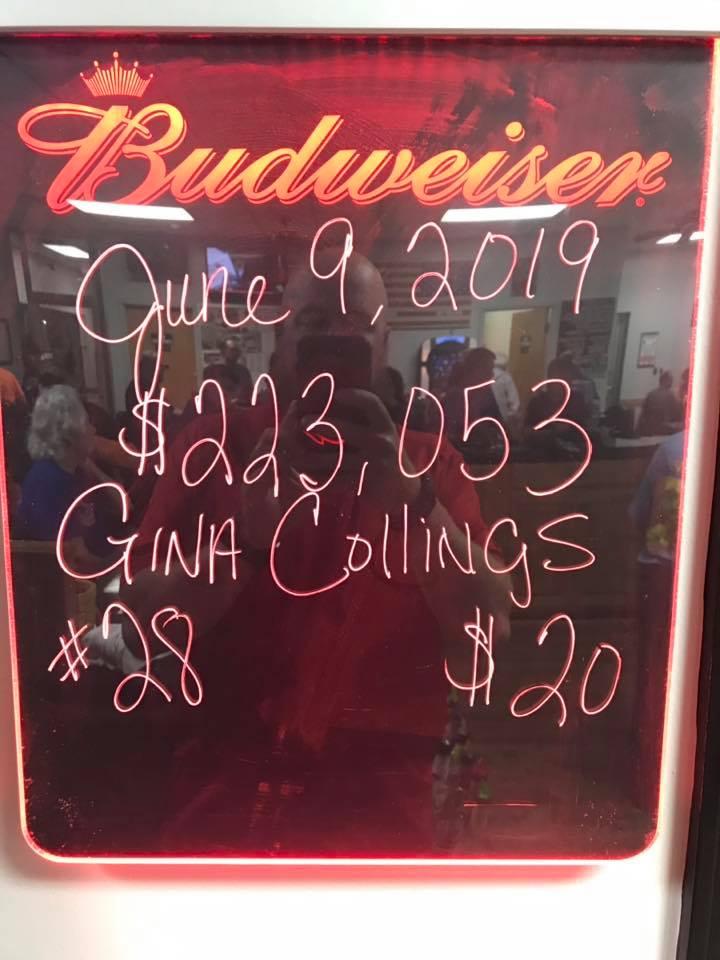 Budweiser
June 9, 2019
$223,053
GINA COllINGS
#28 $20